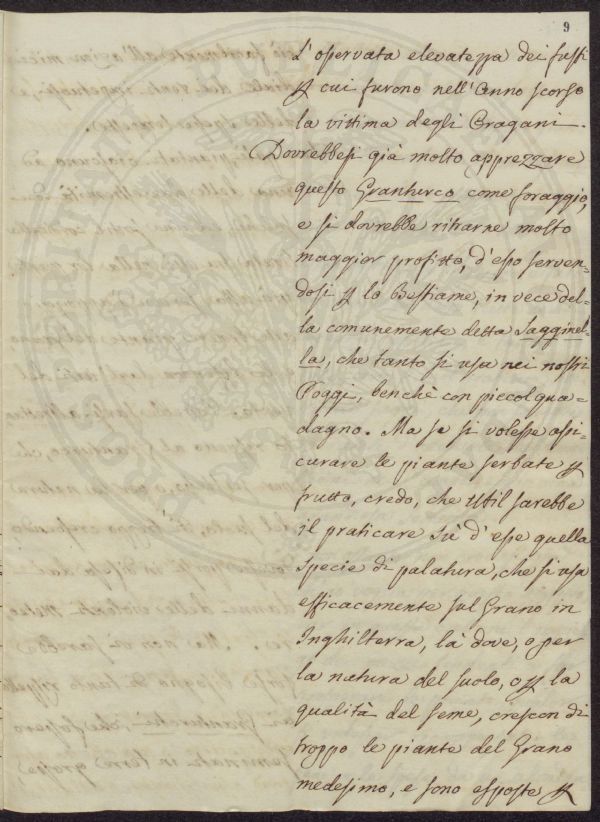 9
L'osservata elevatezza dei fusti
p cui furono nell'Anno scorso
la vittima degli Uragani.
Dovrebbesi già molto apprezzare
questo Granturco come foraggio,
e si dovrebbe ritrarne molto
maggior profitto, d'esso serven-
dosi p lo Bestiame, in vece del-
la comunemente detta Sagginel-
la, che tanto si usa nei nostri
Poggi, benchè con piccol gua=
dagno. Ma se si volesse assi-
curare le piante serbate p
frutto, credo, che util sarebbe
il praticare sù d'esse quella
specie di palatura, che si usa
efficacemente sul Grano in
Inghilterra, là dove, o per
la natura del suolo, o p la
qualità del seme, crescon di
troppo le piante del Grano
medesimo, e sono esposte p